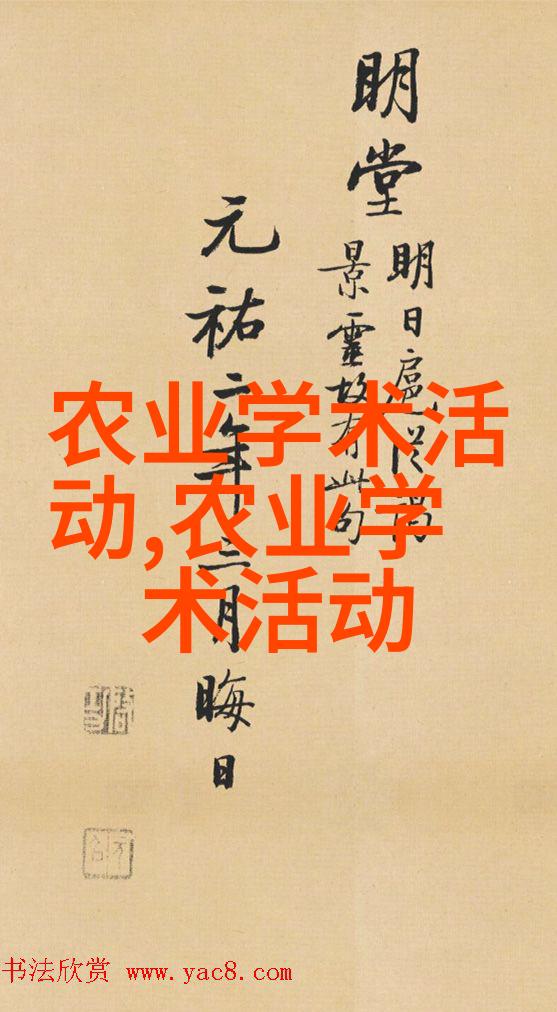 明堂
明日扈從謁
景靈故有此句
元祐二年三月晦日
农业学术活
动,农业学
术活动
书法欣赏 www.yac8.com